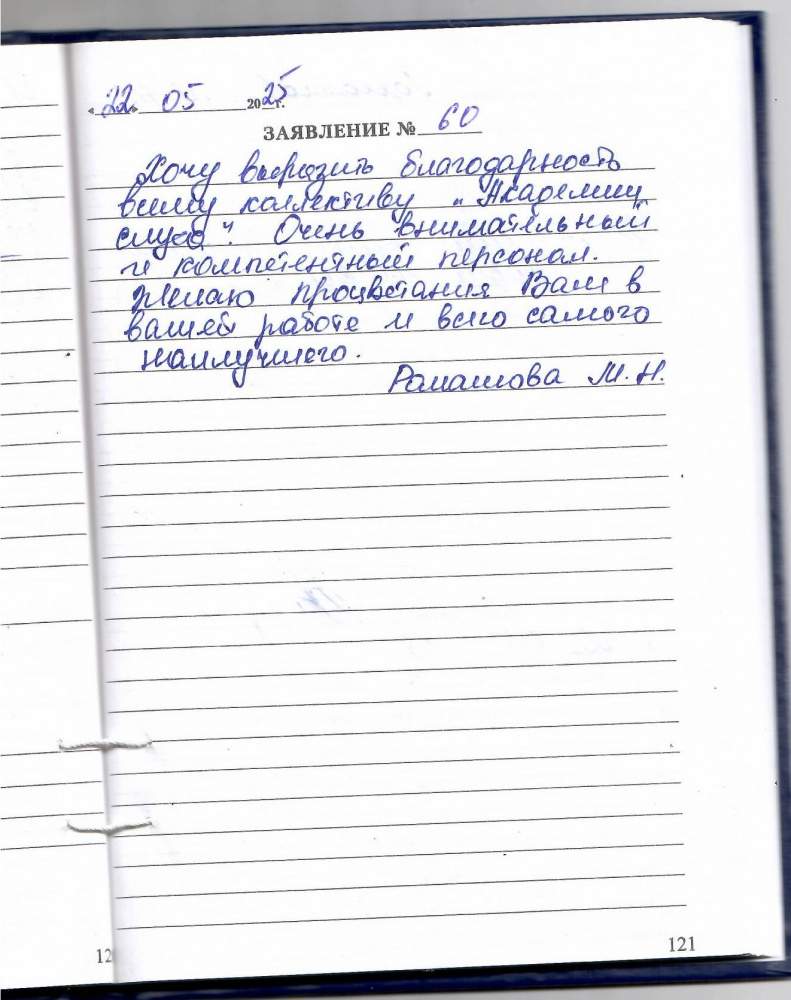 «22» 05 2025 г.
ЗАЯВЛЕНИЕ № 60
Хочу выразить благодарность
всему коллективу „Академии
слуха". Очень внимательный
и компетентный персонал.
Желаю процветания Вам в
вашей работе и всего самого
наилучшего.
Ромашова М.Н.
12
121